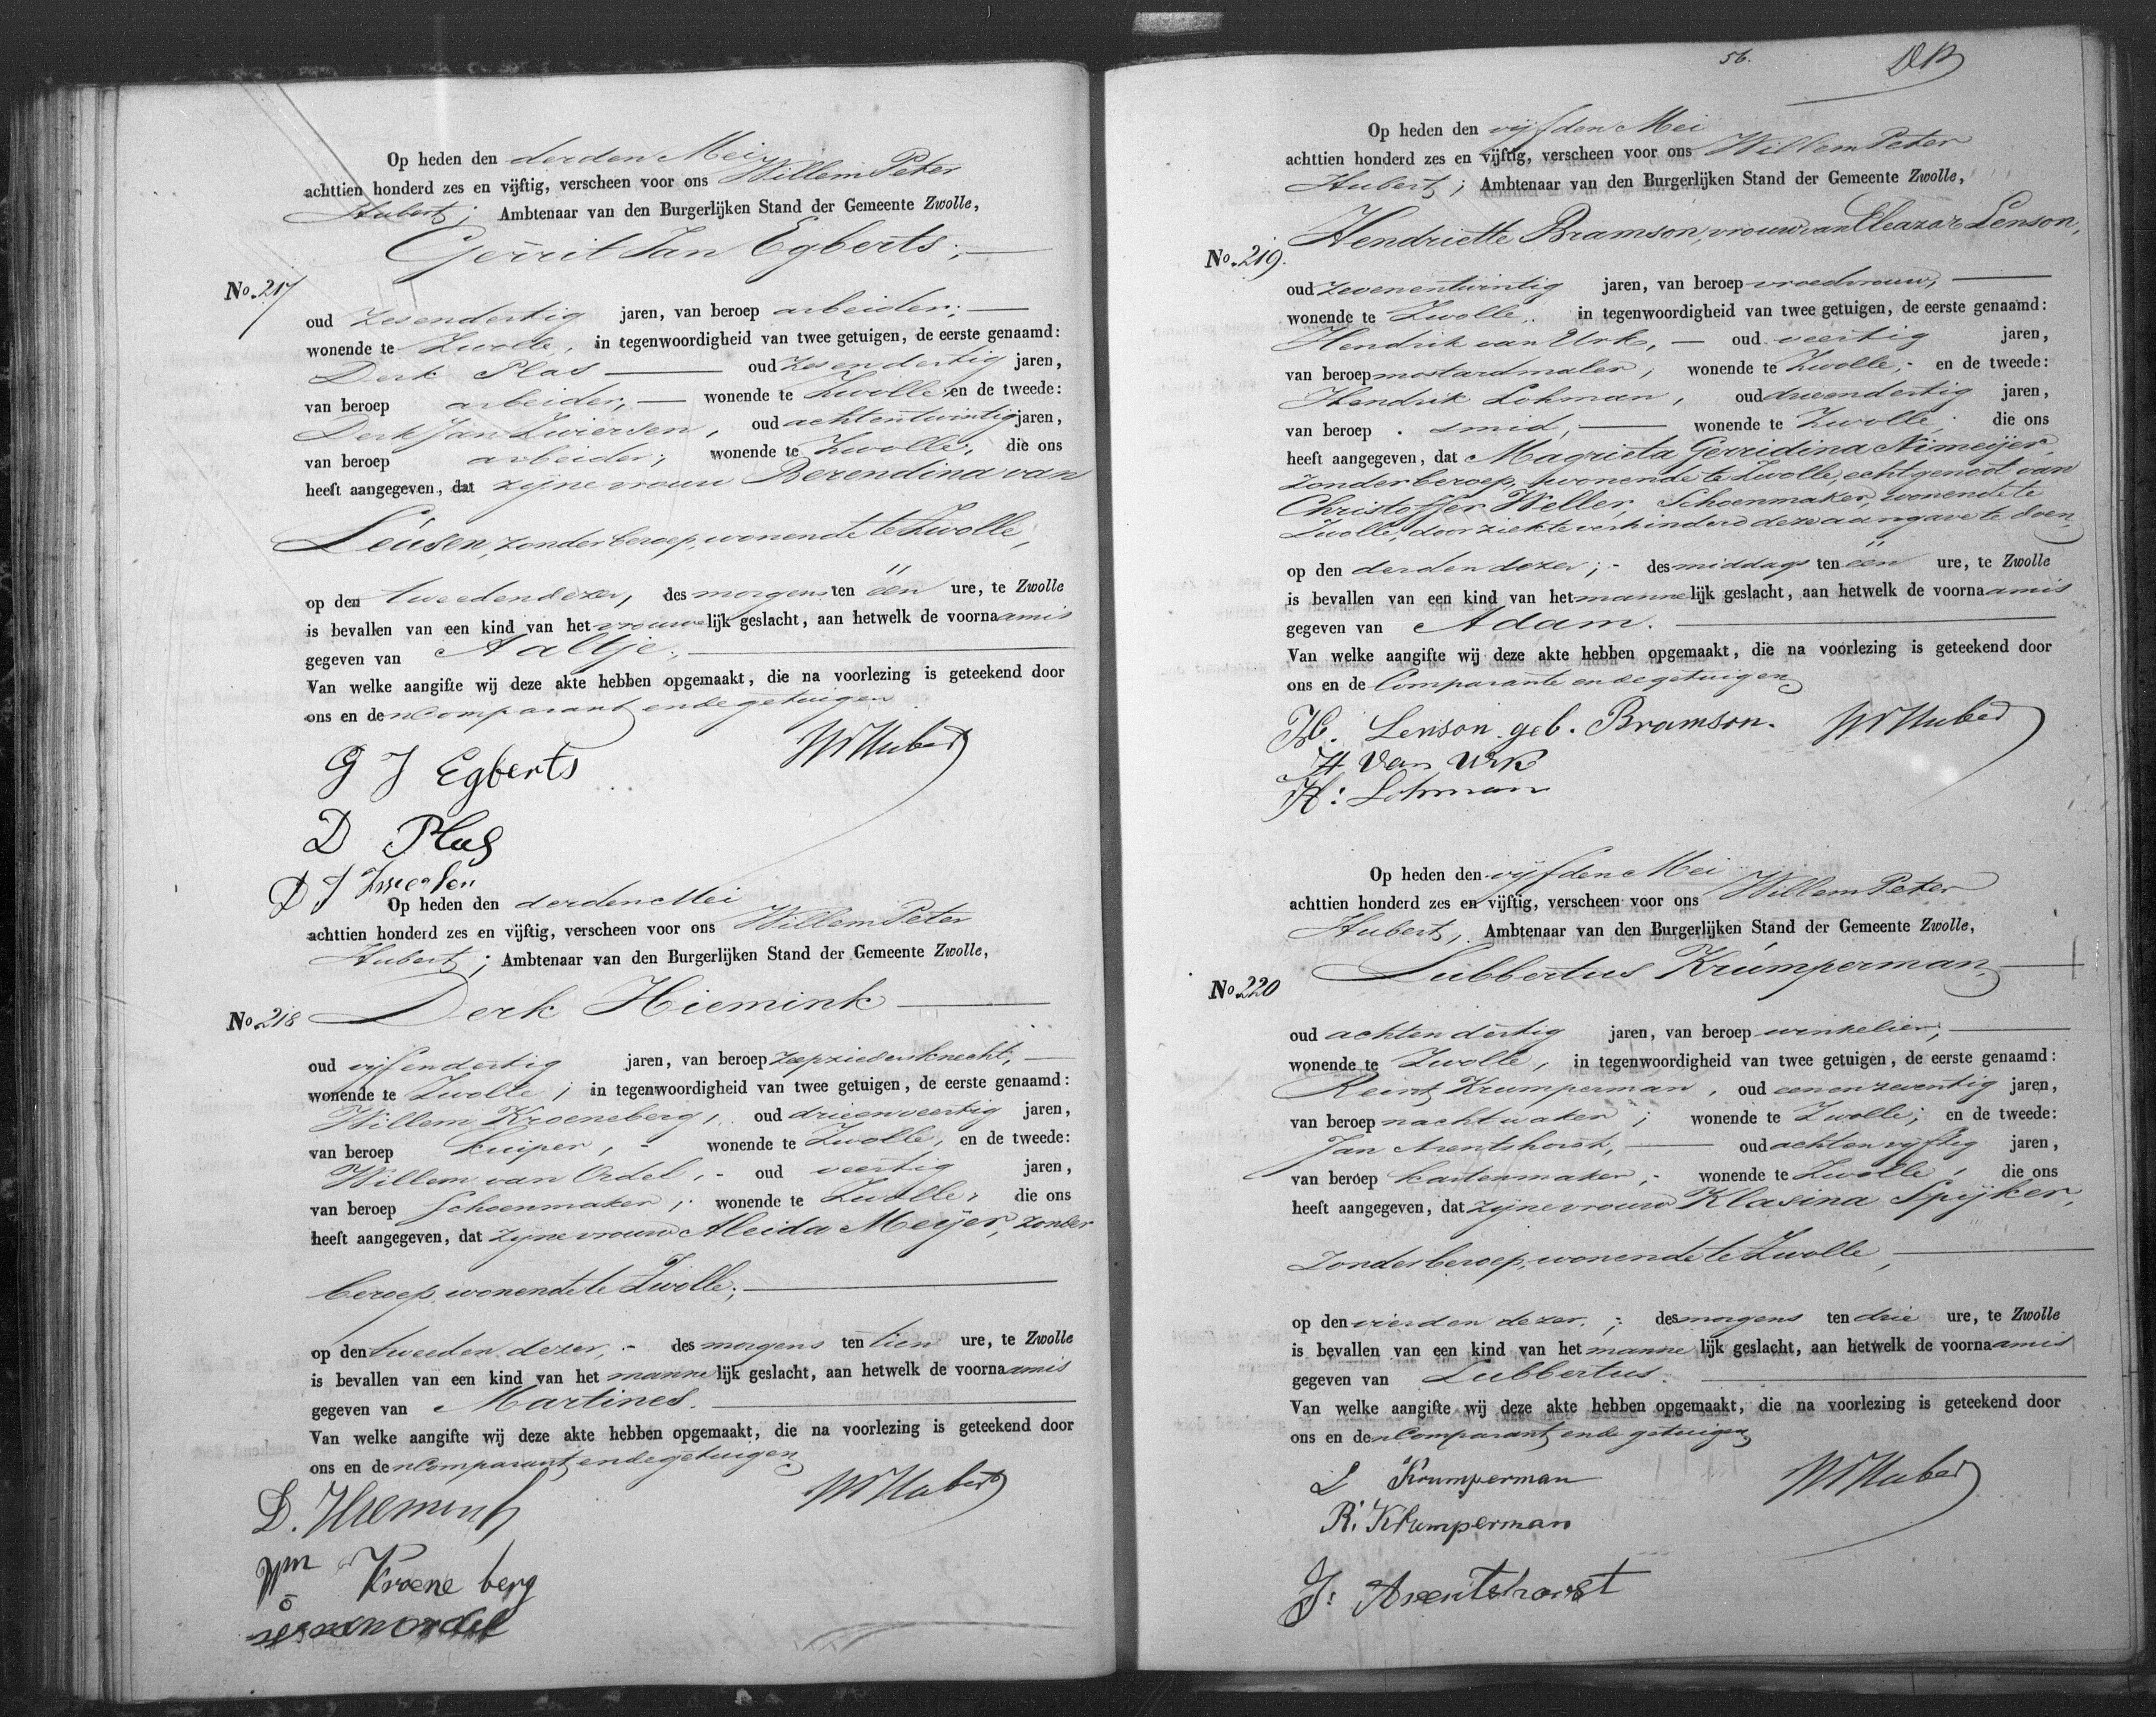 Op heden den derden Mei
achttien honderd zes en vijftig, verscheen voor ons Willem Peter
Hubert; Ambtenaar van den Burgerlijken Stand der Gemeente Zwolle,
Gerrit Jan Egberts;
No. 217
oud zesendertig jaren, van beroep arbeider;
wonende te Zwolle, in tegenwoordigheid van twee getuigen, de eerste genaamd:
Derk Plas oud zesendertig jaren,
van beroep arbeider, wonende te Zwolle; en de tweede:
Derk Jan Zwiersen, oud achtentwintig jaren,
van beroep arbeider; wonende te Zwolle, die ons
heeft aangegeven, dat zijne vrouw Berendina van
Leusen, zonder beroep, wonende te Zwolle,
op den tweeden dezer, des morgens ten één ure, te Zwolle
is bevallen van een kind van het vrouwelijk geslacht, aan hetwelk de voornaam is
gegeven van Aaltje.
Van welke aangifte wij deze akte hebben opgemaakt, die na voorlezing is geteekend door
ons en den Comparant en de getuigen
G J Egberts WPHubert
D Plas
D J
Op heden den derden Mei
achttien honderd zes en vijftig, verscheen voor ons Willem Peter
Hubert; Ambtenaar van den Burgerlijken Stand der Gemeente Zwolle,
No. 218 Derk Hiemink
oud vijfendertig jaren, van beroep zeepziedersknecht,
wonende te Zwolle; in tegenwoordigheid van twee getuigen, de eerste genaamd:
Willem Kroeneberg, oud drieenveertig jaren,
van beroep kuiper, wonende te Zwolle, en de tweede:
Willem van Ordel, oud veertig jaren,
van beroep Schoenmaker; wonende te Zwolle, die ons
heeft aangegeven, dat zijne vrouw Aleida Meijer, zonder
beroep, wonende te Zwolle;
op den tweeden dezer, des morgens ten tien ure, te Zwolle
is bevallen van een kind van het mannelijk geslacht, aan hetwelk de voornaam is
gegeven van Martines.
Van welke aangifte wij deze akte hebben opgemaakt, die na voorlezing is geteekend door
ons en den Comparant en de getuigen
D. Hiemink WPHubert
Wm Kroeneberg
van ordel
56.
Op heden den vijfden Mei
achttien honderd zes en vijftig, verscheen voor ons Willem Peter
Hubert; Ambtenaar van den Burgerlijken Stand der Gemeente Zwolle,
Hendriette Bramson, vrouw van Eleazar Lenson,
No. 219.
oud zevenentwintig jaren, van beroep vroedvrouw,
wonende te Zwolle, in tegenwoordigheid van twee getuigen, de eerste genaamd:
Hendrik van Urk, oud veertig jaren,
van beroep mostardmaler, wonende te Zwolle, en de tweede:
Hendrik Lohman, oud drieendertig jaren,
van beroep smid, wonende te Zwolle, die ons
heeft aangegeven, dat Magrieta Gerridina Nimeijer,
zonder beroep, wonende te Zwolle, echtgenoot van
Christoffer Weller, Schoenmaker, wonende te
Zwolle, door ziekte verhinderd deze aangave te doen,
op den derden dezer; des middags ten één ure, te Zwolle
is bevallen van een kind van het mannelijk geslacht, aan hetwelk de voornaam is
gegeven van Adam.
Van welke aangifte wij deze akte hebben opgemaakt, die na voorlezing is geteekend door
ons en de Comparante en de getuigen
H. Lenson. geb. Bramson. WPHubert
H van Urk
H: Lohman
Op heden den vijfden Mei
achttien honderd zes en vijftig, verscheen voor ons Willem Peter
Hubert, Ambtenaar van den Burgerlijken Stand der Gemeente Zwolle,
Lubbertus Krumperman
No 220
oud achtendertig jaren, van beroep winkelier,
wonende te Zwolle, in tegenwoordigheid van twee getuigen, de eerste genaamd:
Reint Krumperman, oud eenenzeventig jaren,
van beroep nachtwaker; wonende te Zwolle; en de tweede:
Jan Arentshorst, oud achtenvijftig jaren,
van beroep kastenmaker, wonende te Zwolle, die ons
heeft aangegeven, dat zijne vrouw Klasina Spijker,
zonder beroep, wonende te Zwolle,
op den vierden dezer; des morgens ten drie ure, te Zwolle
is bevallen van een kind van het mannelijk geslacht, aan hetwelk de voornaam is
gegeven van Lubbertus.
Van welke aangifte wij deze akte hebben opgemaakt, die na voorlezing is geteekend door
ons en den Comparant en de getuigen
L Krumperman WPHubert
R. Krumperman
J: Arentshorst